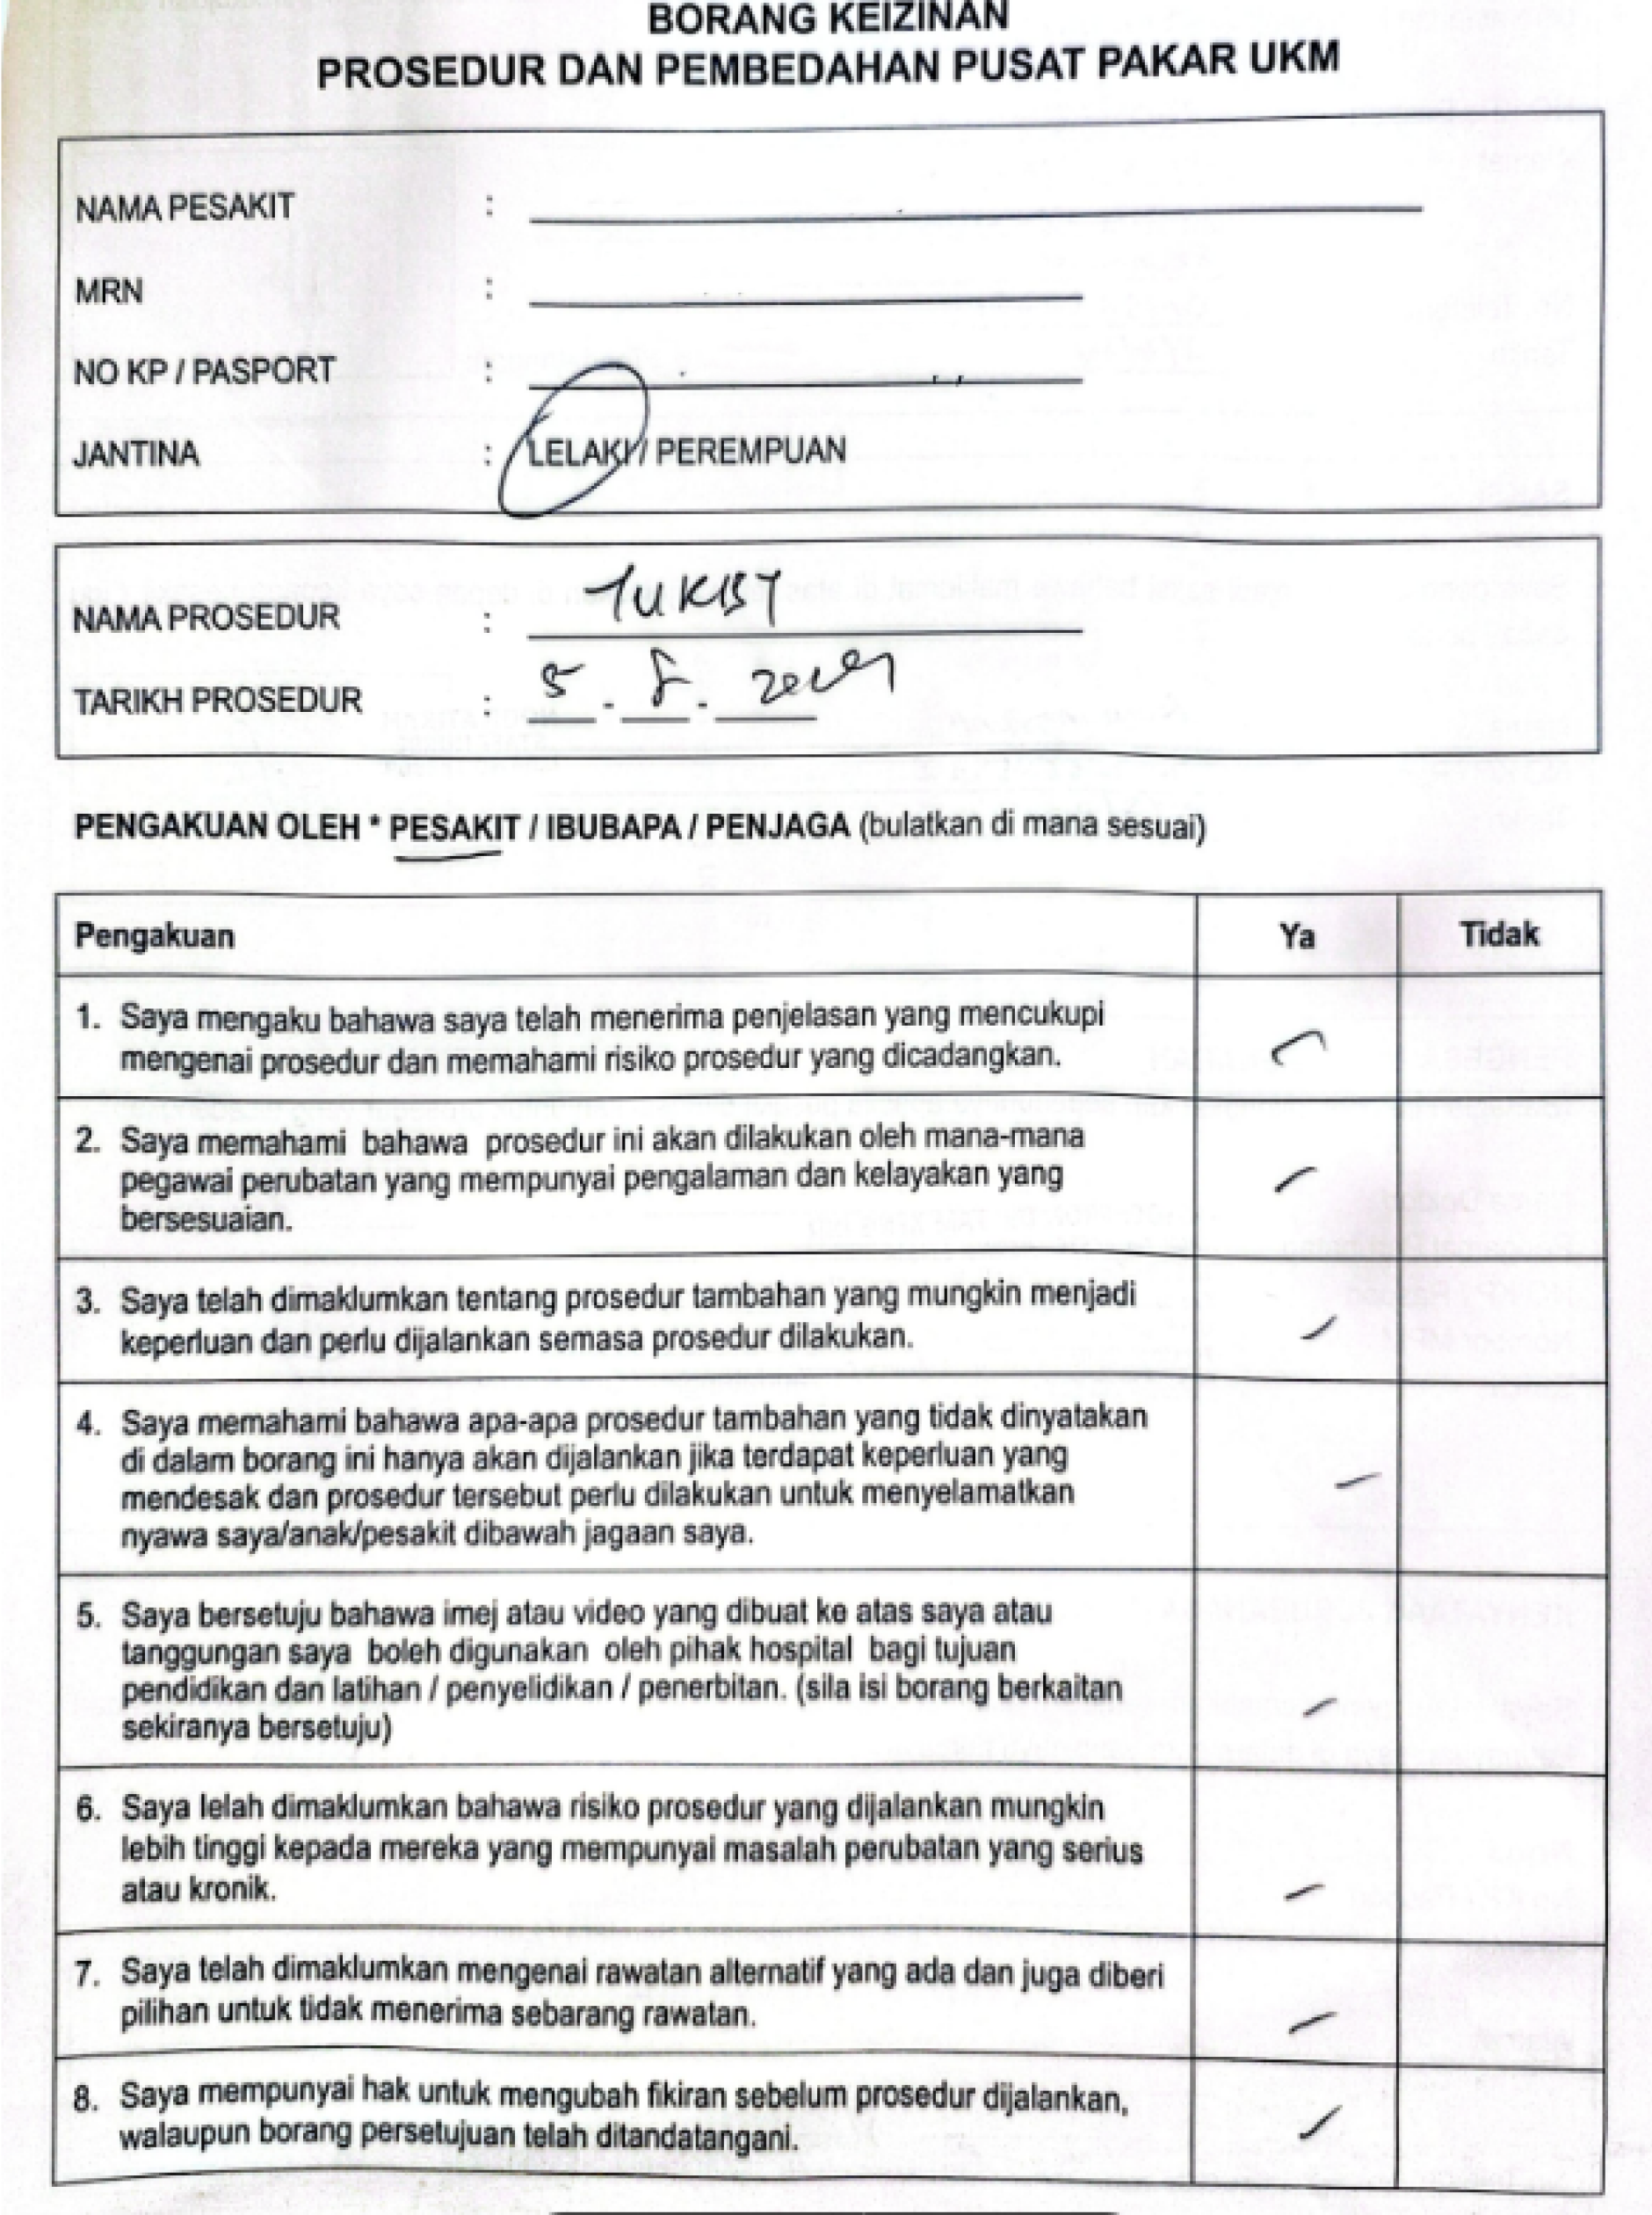 BORANG KEIZINAN
PROSEDUR DAN PEMBEDAHAN PUSAT PAKAR UKM
NAMA PESAKIT :
MRN :
NO KP / PASPORT :
JANTINA : LELAKI / PEREMPUAN
NAMA PROSEDUR :
TARIKH PROSEDUR : 5 . 8 .
PENGAKUAN OLEH * PESAKIT / IBUBAPA / PENJAGA (bulatkan di mana sesuai)
Pengakuan Ya Tidak
1. Saya mengaku bahawa saya telah menerima penjelasan yang mencukupi
mengenai prosedur dan memahami risiko prosedur yang dicadangkan.
2. Saya memahami bahawa prosedur ini akan dilakukan oleh mana-mana
pegawai perubatan yang mempunyai pengalaman dan kelayakan yang
bersesuaian.
3. Saya telah dimaklumkan tentang prosedur tambahan yang mungkin menjadi
keperluan dan perlu dijalankan semasa prosedur dilakukan.
4. Saya memahami bahawa apa-apa prosedur tambahan yang tidak dinyatakan
di dalam borang ini hanya akan dijalankan jika terdapat keperluan yang
mendesak dan prosedur tersebut perlu dilakukan untuk menyelamatkan
nyawa saya/anak/pesakit dibawah jagaan saya.
5. Saya bersetuju bahawa imej atau video yang dibuat ke atas saya atau
tanggungan saya boleh digunakan oleh pihak hospital bagi tujuan
pendidikan dan latihan / penyelidikan / penerbitan. (sila isi borang berkaitan
sekiranya bersetuju)
6. Saya lelah dimaklumkan bahawa risiko prosedur yang dijalankan mungkin
lebih tinggi kepada mereka yang mempunyai masalah perubatan yang serius
atau kronik.
7. Saya telah dimaklumkan mengenai rawatan alternatif yang ada dan juga diberi
pilihan untuk tidak menerima sebarang rawatan.
8. Saya mempunyai hak untuk mengubah fikiran sebelum prosedur dijalankan,
walaupun borang persetujuan telah ditandatangani.